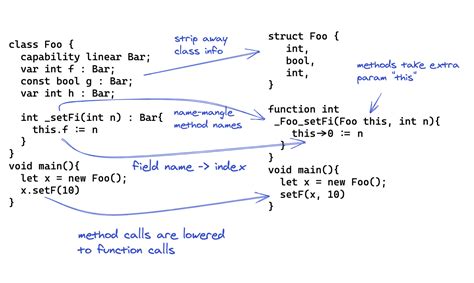 class Foo {
capability linear Bar;
var int f : Bar;
const bool g : Bar;
var int h : Bar;
int _setFi(int n) : Bar{
this.f := n
}
}
void main(){
let x = new Foo();
x.setF(10)
}
strip away
class info
name-mangle
method names
field name -> index
method calls are lowered
to function calls
struct Foo {
int,
bool,
int,
}
methods take extra
param "this"
function int
_Foo_setFi(Foo this, int n){
this→0 := n
}
}
void main(){
let x = new Foo();
setF(x, 10)
}